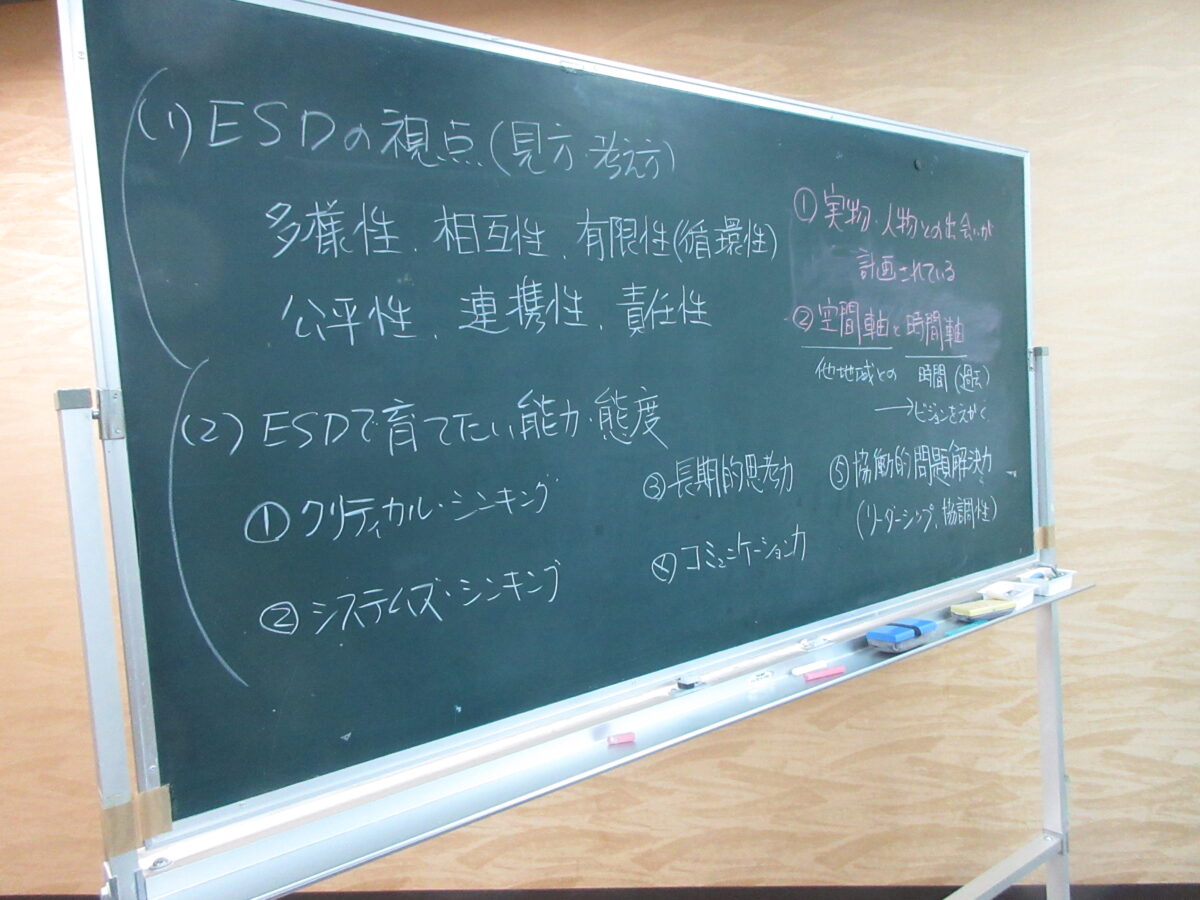 (1) ESDの視点(見方・考え方)
多様性、相互性、有限性(循環性)
公平性、連携性、責任性
(2) ESDで育てたい能力・態度
① クリティカル・シンキング
② システムズ・シンキング
③ 長期的思考力
④ コミュニケーション力
⑤ 協働的問題解決力
(リーダーシップ、協調性)
① 実物・人物との出会いが
計画されている
② 空間軸と時間軸
他地域との 時間(過去)
→ビジョンをえがく